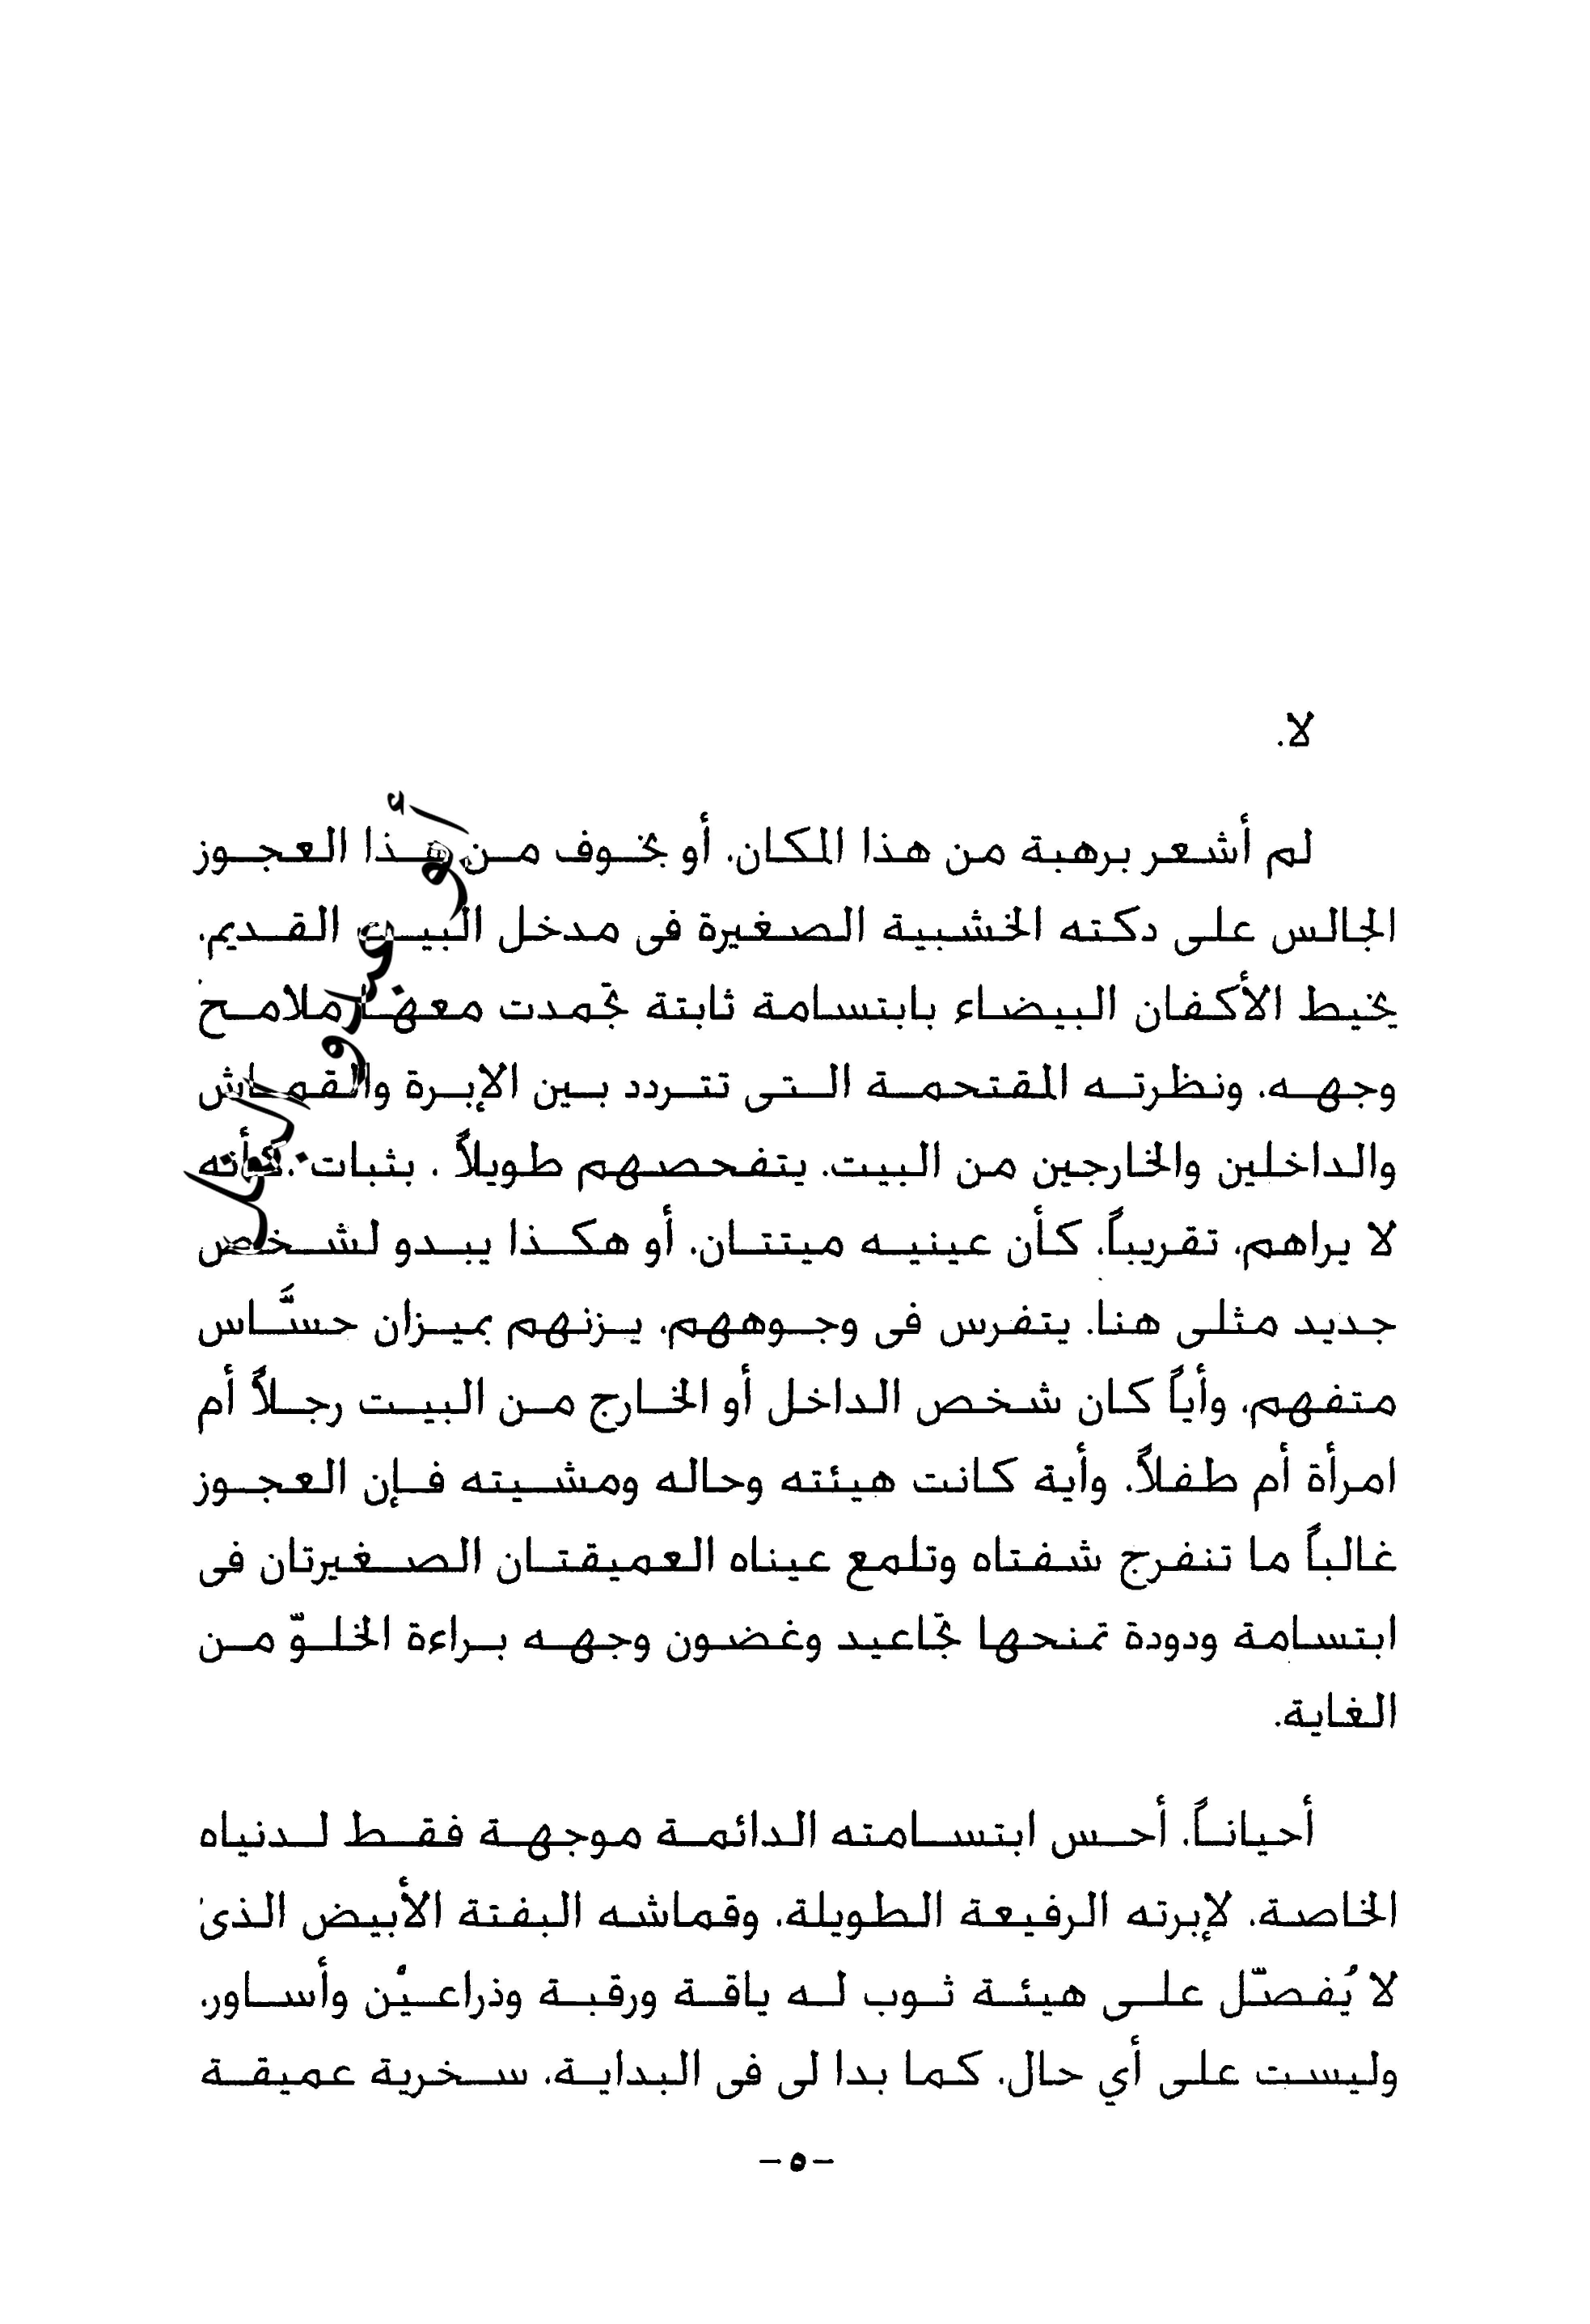 لا.
لم أشعر برهبة من هذا المكان، أو بخوف من هذا العجوز
الجالس على دكته الخشبية الصغيرة فى مدخل البيت القديم،
يخيط الأكفان البيضاء بابتسامة ثابتة تجمدت معها ملامح
وجهه، ونظرته المقتحمة التى تتردد بين الإبرة والقماش
والداخلين والخارجين من البيت. يتفحصهم طويلاً . بثبات. كأنه
لا يراهم، تقريباً، كأن عينيه ميتتان، أو هكذا يبدو لشخص
جديد مثلى هنا. يتفرس فى وجوههم، يزنهم بميزان حسَّاس
متفهم، وأياً كان شخص الداخل أو الخارج من البيت رجلاً أم
امرأة أم طفلاً، وأية كانت هيئته وحاله ومشيته فإن العجوز
غالباً ما تنفرج شفتاه وتلمع عيناه العميقتان الصغيرتان فى
ابتسامة ودودة تمنحها تجاعيد وغضون وجهه براءة الخلوّ من
الغاية.
أحياناً، أحس ابتسامته الدائمة موجهة فقط لدنياه
الخاصة، لإبرته الرفيعة الطويلة، وقماشه البفتة الأبيض الذى
لا يُفصّل على هيئة ثوب له ياقة ورقبة وذراعيْن وأساور،
وليست على أي حال، كما بدا لى فى البداية، سخرية عميقة
-٥-